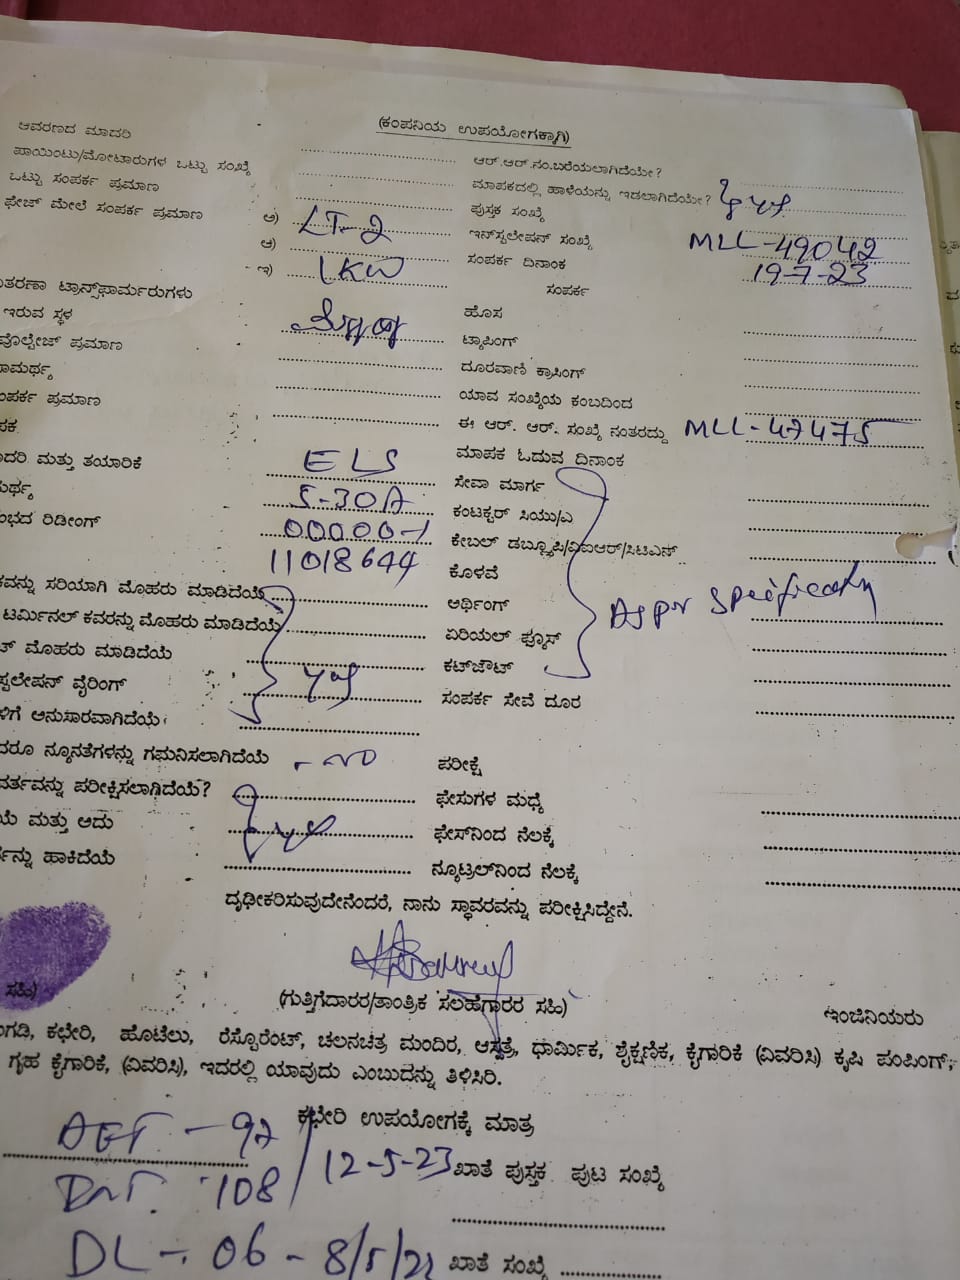 (ಕಂಪನಿಯ ಉಪಯೋಗಕ್ಕಾಗಿ)
ಆವರಣದ ಮಾದರಿ ಆರ್.ಆರ್.ನಂ.ಬರೆಯಲಾಗಿದೆಯೇ?
ಪಾಯಿಂಟು/ಮೋಟಾರುಗಳ ಒಟ್ಟು ಸಂಖ್ಯೆ ಮಾಪಕದಲ್ಲಿ ಹಾಳೆಯನ್ನು ಇಡಲಾಗಿದೆಯೇ? yes
ಒಟ್ಟು ಸಂಪರ್ಕ ಪ್ರಮಾಣ ಪುಸ್ತಕ ಸಂಖ್ಯೆ
ಫೇಜ್ ಮೇಲೆ ಸಂಪರ್ಕ ಪ್ರಮಾಣ ಅ) LT-2 ಇನ್‌ಸ್ಟಲೇಷನ್ ಸಂಖ್ಯೆ MLL-49042
ಆ) 1KW ಸಂಪರ್ಕ ದಿನಾಂಕ 19-7-23
ಇ) ಸಂಪರ್ಕ
ತರಣಾ ಟ್ರಾನ್ಸ್‌ಫಾರ್ಮರುಗಳು
ಇರುವ ಸ್ಥಳ ಹೊಸ
ವೊಲ್ಟೇಜ್ ಪ್ರಮಾಣ ಟ್ಯಾಪಿಂಗ್
ಾಮರ್ಥ್ಯ ದೂರವಾಣಿ ಕ್ರಾಸಿಂಗ್
ಂಪರ್ಕ ಪ್ರಮಾಣ ಯಾವ ಸಂಖ್ಯೆಯ ಕಂಬದಿಂದ
ಪಕ ಈ ಆರ್. ಆರ್. ಸಂಖ್ಯೆ ನಂತರದ್ದು MLL-47475
ಾದರಿ ಮತ್ತು ತಯಾರಿಕೆ ELS ಮಾಪಕ ಓದುವ ದಿನಾಂಕ
ಮರ್ಥ್ಯ 5-30A ಸೇವಾ ಮಾರ್ಗ
ಂಭದ ರಿಡೀಂಗ್ 00000-1 ಕಂಟಕ್ಟರ್ ಸಿಯು/ಎ
11018644 ಕೇಬಲ್ ಡಬ್ಲ್ಯೂಪಿ/ವಿಐಆರ್/ಸಿಟಿಎಸ್
ಕವನ್ನು ಸರಿಯಾಗಿ ಮೊಹರು ಮಾಡಿದೆಯೆ ಕೊಳವೆ
ಟರ್ಮಿನಲ್ ಕವರನ್ನು ಮೊಹರು ಮಾಡಿದೆಯೆ ಅರ್ಥಿಂಗ್ As per
ಟ್ ಮೊಹರು ಮಾಡಿದೆಯೆ ಏರಿಯಲ್ ಫ್ಯೂಸ್
ಸ್ಟಲೇಷನ್ ವೈರಿಂಗ್ yes ಕಟ್‌ಔಟ್
ಳಿಗೆ ಅನುಸಾರವಾಗಿದೆಯೆ ಸಂಪರ್ಕ ಸೇವೆ ದೂರ
ದರೂ ನ್ಯೂನತೆಗಳನ್ನು ಗಮನಿಸಲಾಗಿದೆಯೆ - no ಪರೀಕ್ಷೆ
ವರ್ತವನ್ನು ಪರೀಕ್ಷಿಸಲಾಗಿದೆಯೆ? ಫೇಸುಗಳ ಮಧ್ಯೆ
ಯೆ ಮತ್ತು ಅದು yes ಫೇಸ್‌ನಿಂದ ನೆಲಕ್ಕೆ
ನ್ನು ಹಾಕಿದೆಯೆ ನ್ಯೂಟ್ರಲ್‌ನಿಂದ ನೆಲಕ್ಕೆ
ದೃಢೀಕರಿಸುವುದೇನೆಂದರೆ, ನಾನು ಸ್ಥಾವರವನ್ನು ಪರೀಕ್ಷಿಸಿದ್ದೇನೆ.
ಸಹಿ) (ಗುತ್ತಿಗೆದಾರರ/ತಾಂತ್ರಿಕ ಸಲಹೆಗಾರರ ಸಹಿ) ಇಂಜಿನಿಯರು
ಂಗಡಿ, ಕಛೇರಿ, ಹೊಟೆಲು, ರೆಸ್ಟೊರೆಂಟ್, ಚಲನಚಿತ್ರ ಮಂದಿರ, ಆಸ್ಪತ್ರೆ, ಧಾರ್ಮಿಕ, ಶೈಕ್ಷಣಿಕ, ಕೈಗಾರಿಕೆ (ವಿವರಿಸಿ) ಕೃಷಿ ಪಂಪಿಂಗ್,
ಗೃಹ ಕೈಗಾರಿಕೆ, (ವಿವರಿಸಿ), ಇದರಲ್ಲಿ ಯಾವುದು ಎಂಬುದನ್ನು ತಿಳಿಸಿರಿ.
ಕಛೇರಿ ಉಪಯೋಗಕ್ಕೆ ಮಾತ್ರ
12-5-23 ಖಾತೆ ಪುಸ್ತಕ ಪುಟ ಸಂಖ್ಯೆ
108
DL-06-8/5/23 ಖಾತೆ ಸಂಖ್ಯೆ